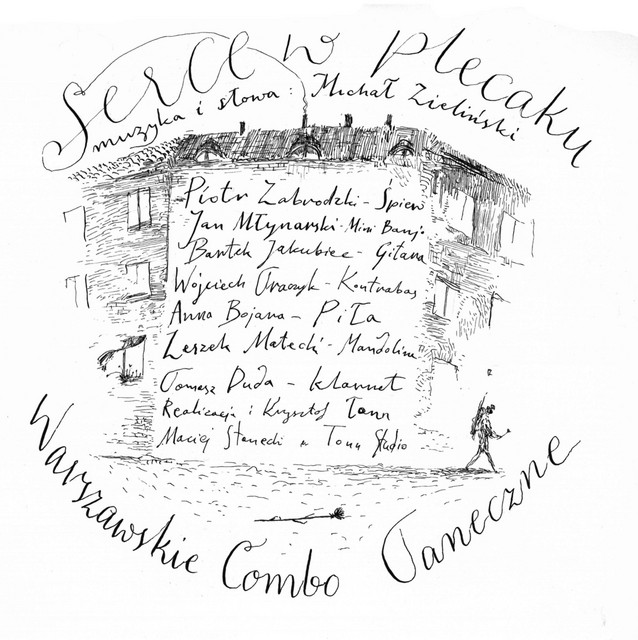 Serce w plecaku
muzyka i słowa: Michał Zieliński
Piotr Zabrodzki - Śpiew
Jan Młynarski - Mini Banjo
Bartek Jakubiec - Gitara
Wojciech Traczyk - Kontrabas
Anna Bojara - Piła
Leszek Małecki - Mandolina
Tomasz Duda - klarnet
Realizacja i Krzysztof Tonn
Maciej Stanecki w Tonn Studio
Warszawskie Combo Taneczne